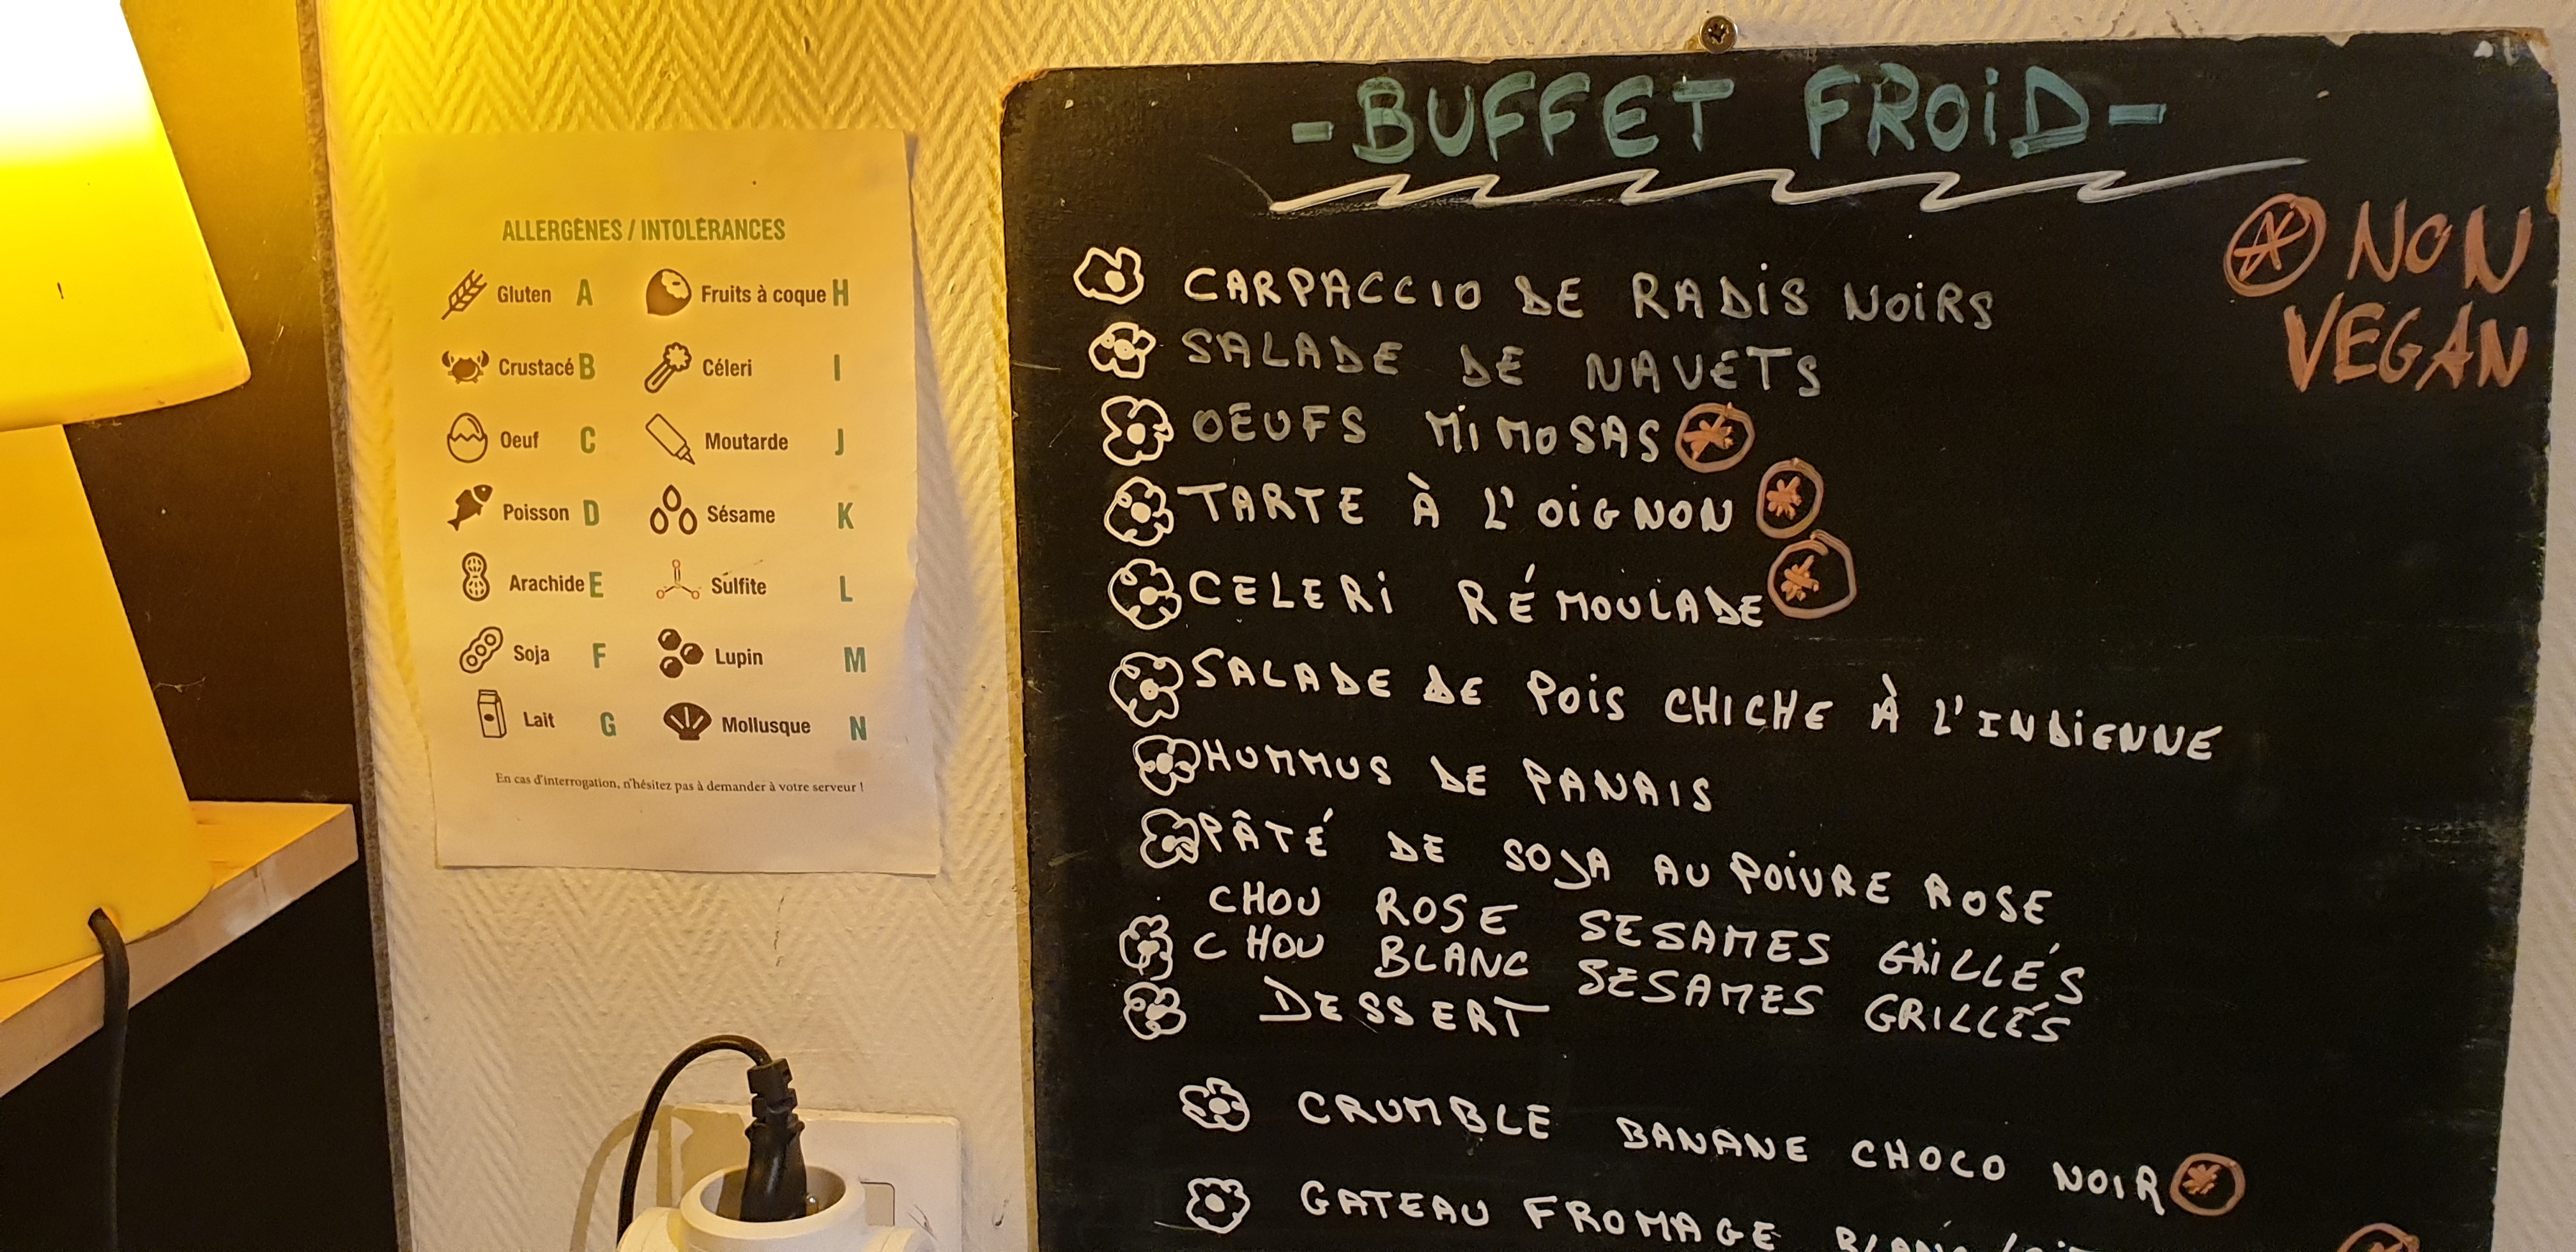 ALLERGÈNES / INTOLÉRANCES
Gluten A
Fruits à coque H
Crustacé B
Céleri I
Oeuf C
Moutarde J
Poisson D
Sésame K
Arachide E
Sulfite L
Soja F
Lupin M
Lait G
Mollusque N
En cas d'interrogation, n'hésitez pas à demander à votre serveur !
-BUFFET FROiD-
NON
VEGAN
CARPACCIO DE RADiS NOiRS
SALADE DE NAVETS
OEUFS MiMOSAS
TARTE À L'OiGNON
CELERi RÉMOULADE
SALADE DE POiS CHICHE À L'INDiENNE
HUMMUS DE PANAIS
PÂTÉ DE SOJA AU POiVRE ROSE
CHOU ROSE SESAMES GRiLLÉS
CHOU BLANC SESAMES GRILLÉS
DESSERT
CRUMBLE BANANE CHOCO NOIR
GATEAU FROMAGE BLANC